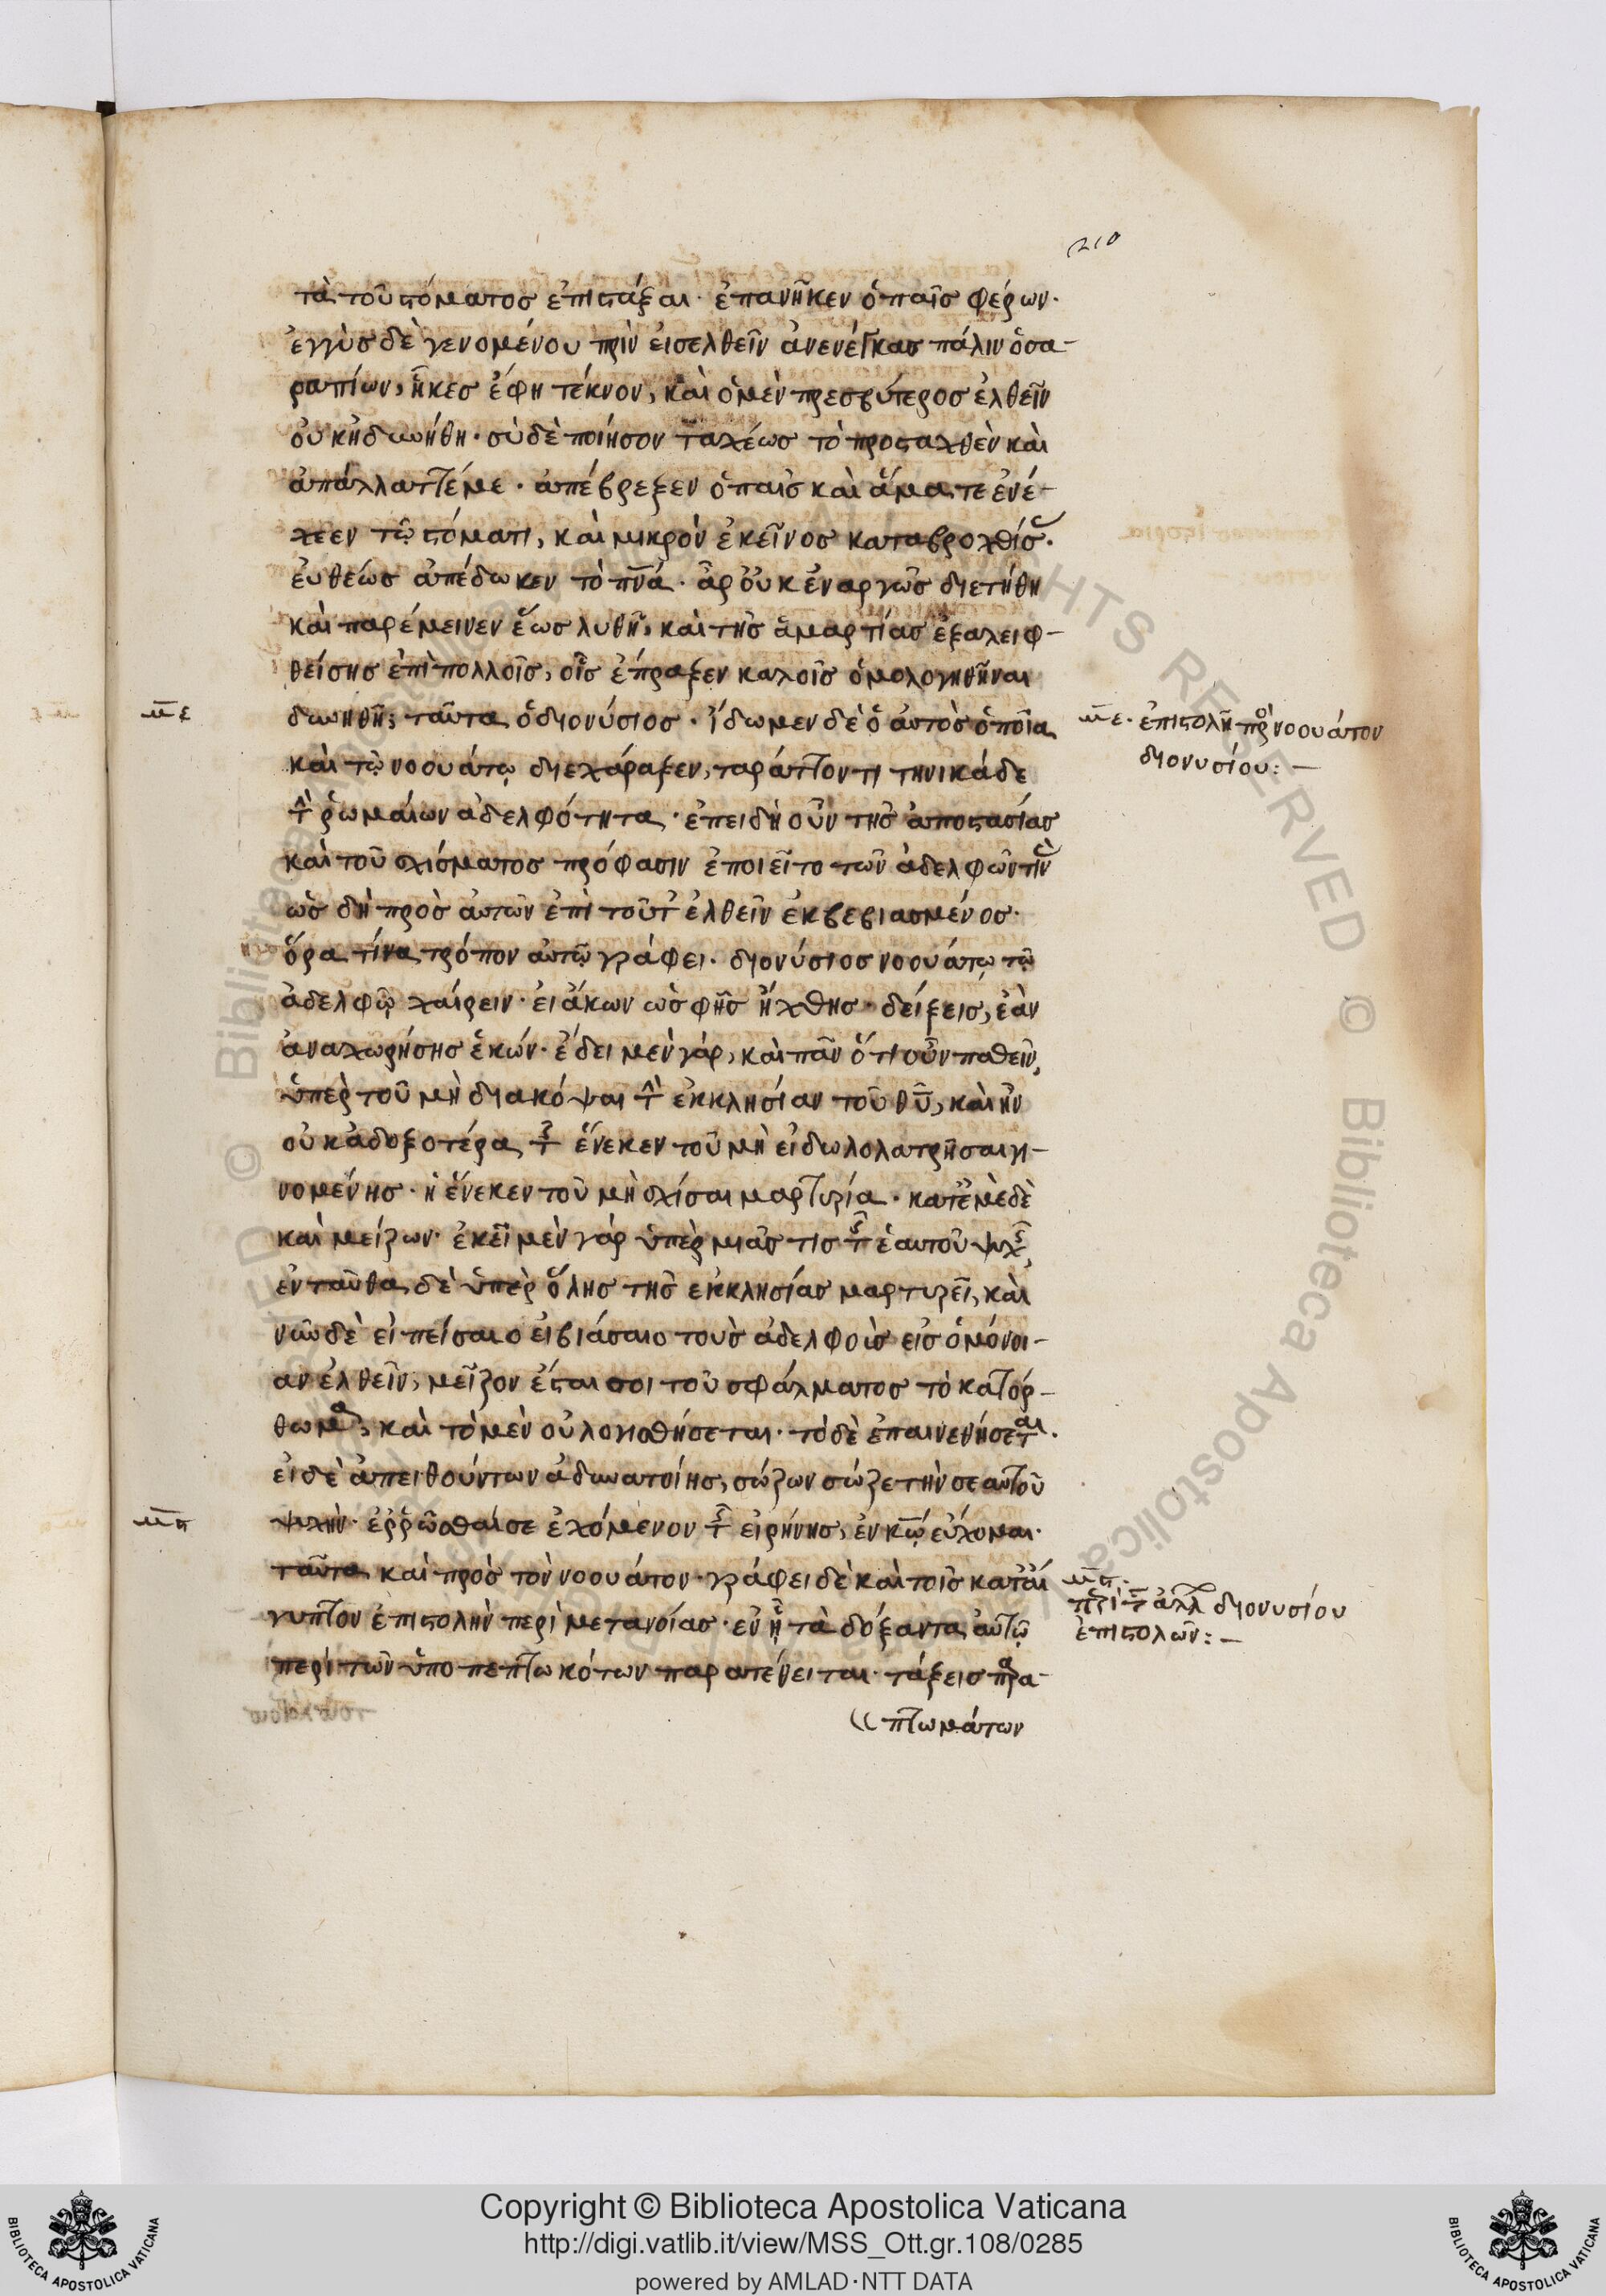 210
τὰ τοῦ στόματος ἐπιστάξαι· ἐπανῆκεν ὁ παῖς φέρων·
ἐγγὺς δὲ γενομένου πρὶν εἰσελθεῖν ἀνενέγκας πάλιν ὁ σα-
ραπίων, ἧκες ἔφη τέκνον, καὶ ὁ μὲν πρεσβύτερος ἐλθεῖν
οὐκ ἠδυνήθη· σὺ δὲ ποίησον ταχέως τὸ προσταχθὲν καὶ
ἀπάλλαττέ με· ἀπέβρεξεν ὁ παῖς καὶ ἅμα τε ἐνέ-
χεεν τῷ στόματι, καὶ μικρὸν ἐκεῖνος καταβροχθίσ·
εὐθέως ἀπέδωκεν τὸ πνα· ἆρ οὐκ ἐναργῶς διετήθη
καὶ παρέμεινεν ἕως λυθῇ, καὶ τῆς ἁμαρτίας ἐξαλειφ-
θείσης ἐπὶ πολλοῖς, οἷς ἔπραξεν καλοῖς ὁμολογηθῆναι
με
δυνηθῇ; ταῦτα ὁ διονύσιος· ἴδωμεν δὲ ὁ αὐτὸς ὁποῖα
με· ἐπιστολὴ πρὸ νοουάτον
διονυσίου:—
καὶ τῷ νοουάτῳ διεχάραξεν, ταράττοντι τηνικάδε
τ ῥωμαίων ἀδελφότητα· ἐπειδὴ οὖν τῆς ἀποστασίας
καὶ τοῦ σχίσματος πρόφασιν ἐποιεῖτο τῶν ἀδελφῶν τιν
ὡς δὴ πρὸς αὐτῶν ἐπὶ τοῦτ ἐλθεῖν ἐκβεβιασμένος·
ὅρα τίνα τρόπον αὐτῷ γράφει· διονύσιος νοουάτῳ τῷ
ἀδελφῷ χαίρειν· εἰ ἄκων ὡς φῂς ἤχθης· δείξεις, ἐὰν
ἀναχωρήσῃς ἑκών· ἔδει μὲν γὰρ, καὶ πᾶν ὁτιοῦν παθεῖν,
ὑπὲρ τοῦ μὴ διακόψαι τ ἐκκλησίαν τοῦ θυ, καὶ ἦν
οὐκ ἀδοξοτέρα τ ἕνεκεν τοῦ μὴ εἰδωλολατρῆσαι γι-
νομένης· ἡ ἕνεκεν τοῦ μὴ σχίσαι μαρτυρία· κατ ἐμὲ δὲ
καὶ μείζων· ἐκεῖ μὲν γὰρ ὑπὲρ μιᾶς τις τ ἑαυτοῦ ψυχ,
ἐνταῦθα δὲ ὑπὲρ ὅλης τῆς ἐκκλησίας μαρτυρεῖ, καὶ
νῦν δὲ εἰ πείσαις ἢ βιάσαιο τοὺς ἀδελφοὺς εἰς ὁμόνοι-
αν ἐλθεῖν, μεῖζον ἔσται σοι τοῦ σφάλματος τὸ κατόρ-
θωμα, καὶ τὸ μὲν οὐ λογισθήσεται· τὸ δὲ ἐπαινεθήσεται·
εἰ δὲ ἀπειθούντων ἀδυνατοίης, σώζων σῶζε τὴν σεαυτοῦ
μϛ
ψυχήν· ἐρρῶσθαί σε ἐχόμενον τ εἰρήνης, ἐν κῳ εὔχομαι·
ταῦτα καὶ πρὸς τὸν νοουάτον· γράφει δὲ καὶ τοῖς κατ αἴ
μϛ·
περὶ τ ἀλλ διονυσίου
ἐπιστολῶν:—
γυπτον ἐπιστολὴν περὶ μετανοίας· ἐν ᾗ τὰ δόξαντα αὐτῷ
περὶ τῶν ὑποπεπτωκότων παρατέθειται· τάξεις παρα-
πτωμάτων
Copyright © Biblioteca Apostolica Vaticana
http://digi.vatlib.it/view/MSS_Ott.gr.108/0285
powered by AMLAD·NTT DATA